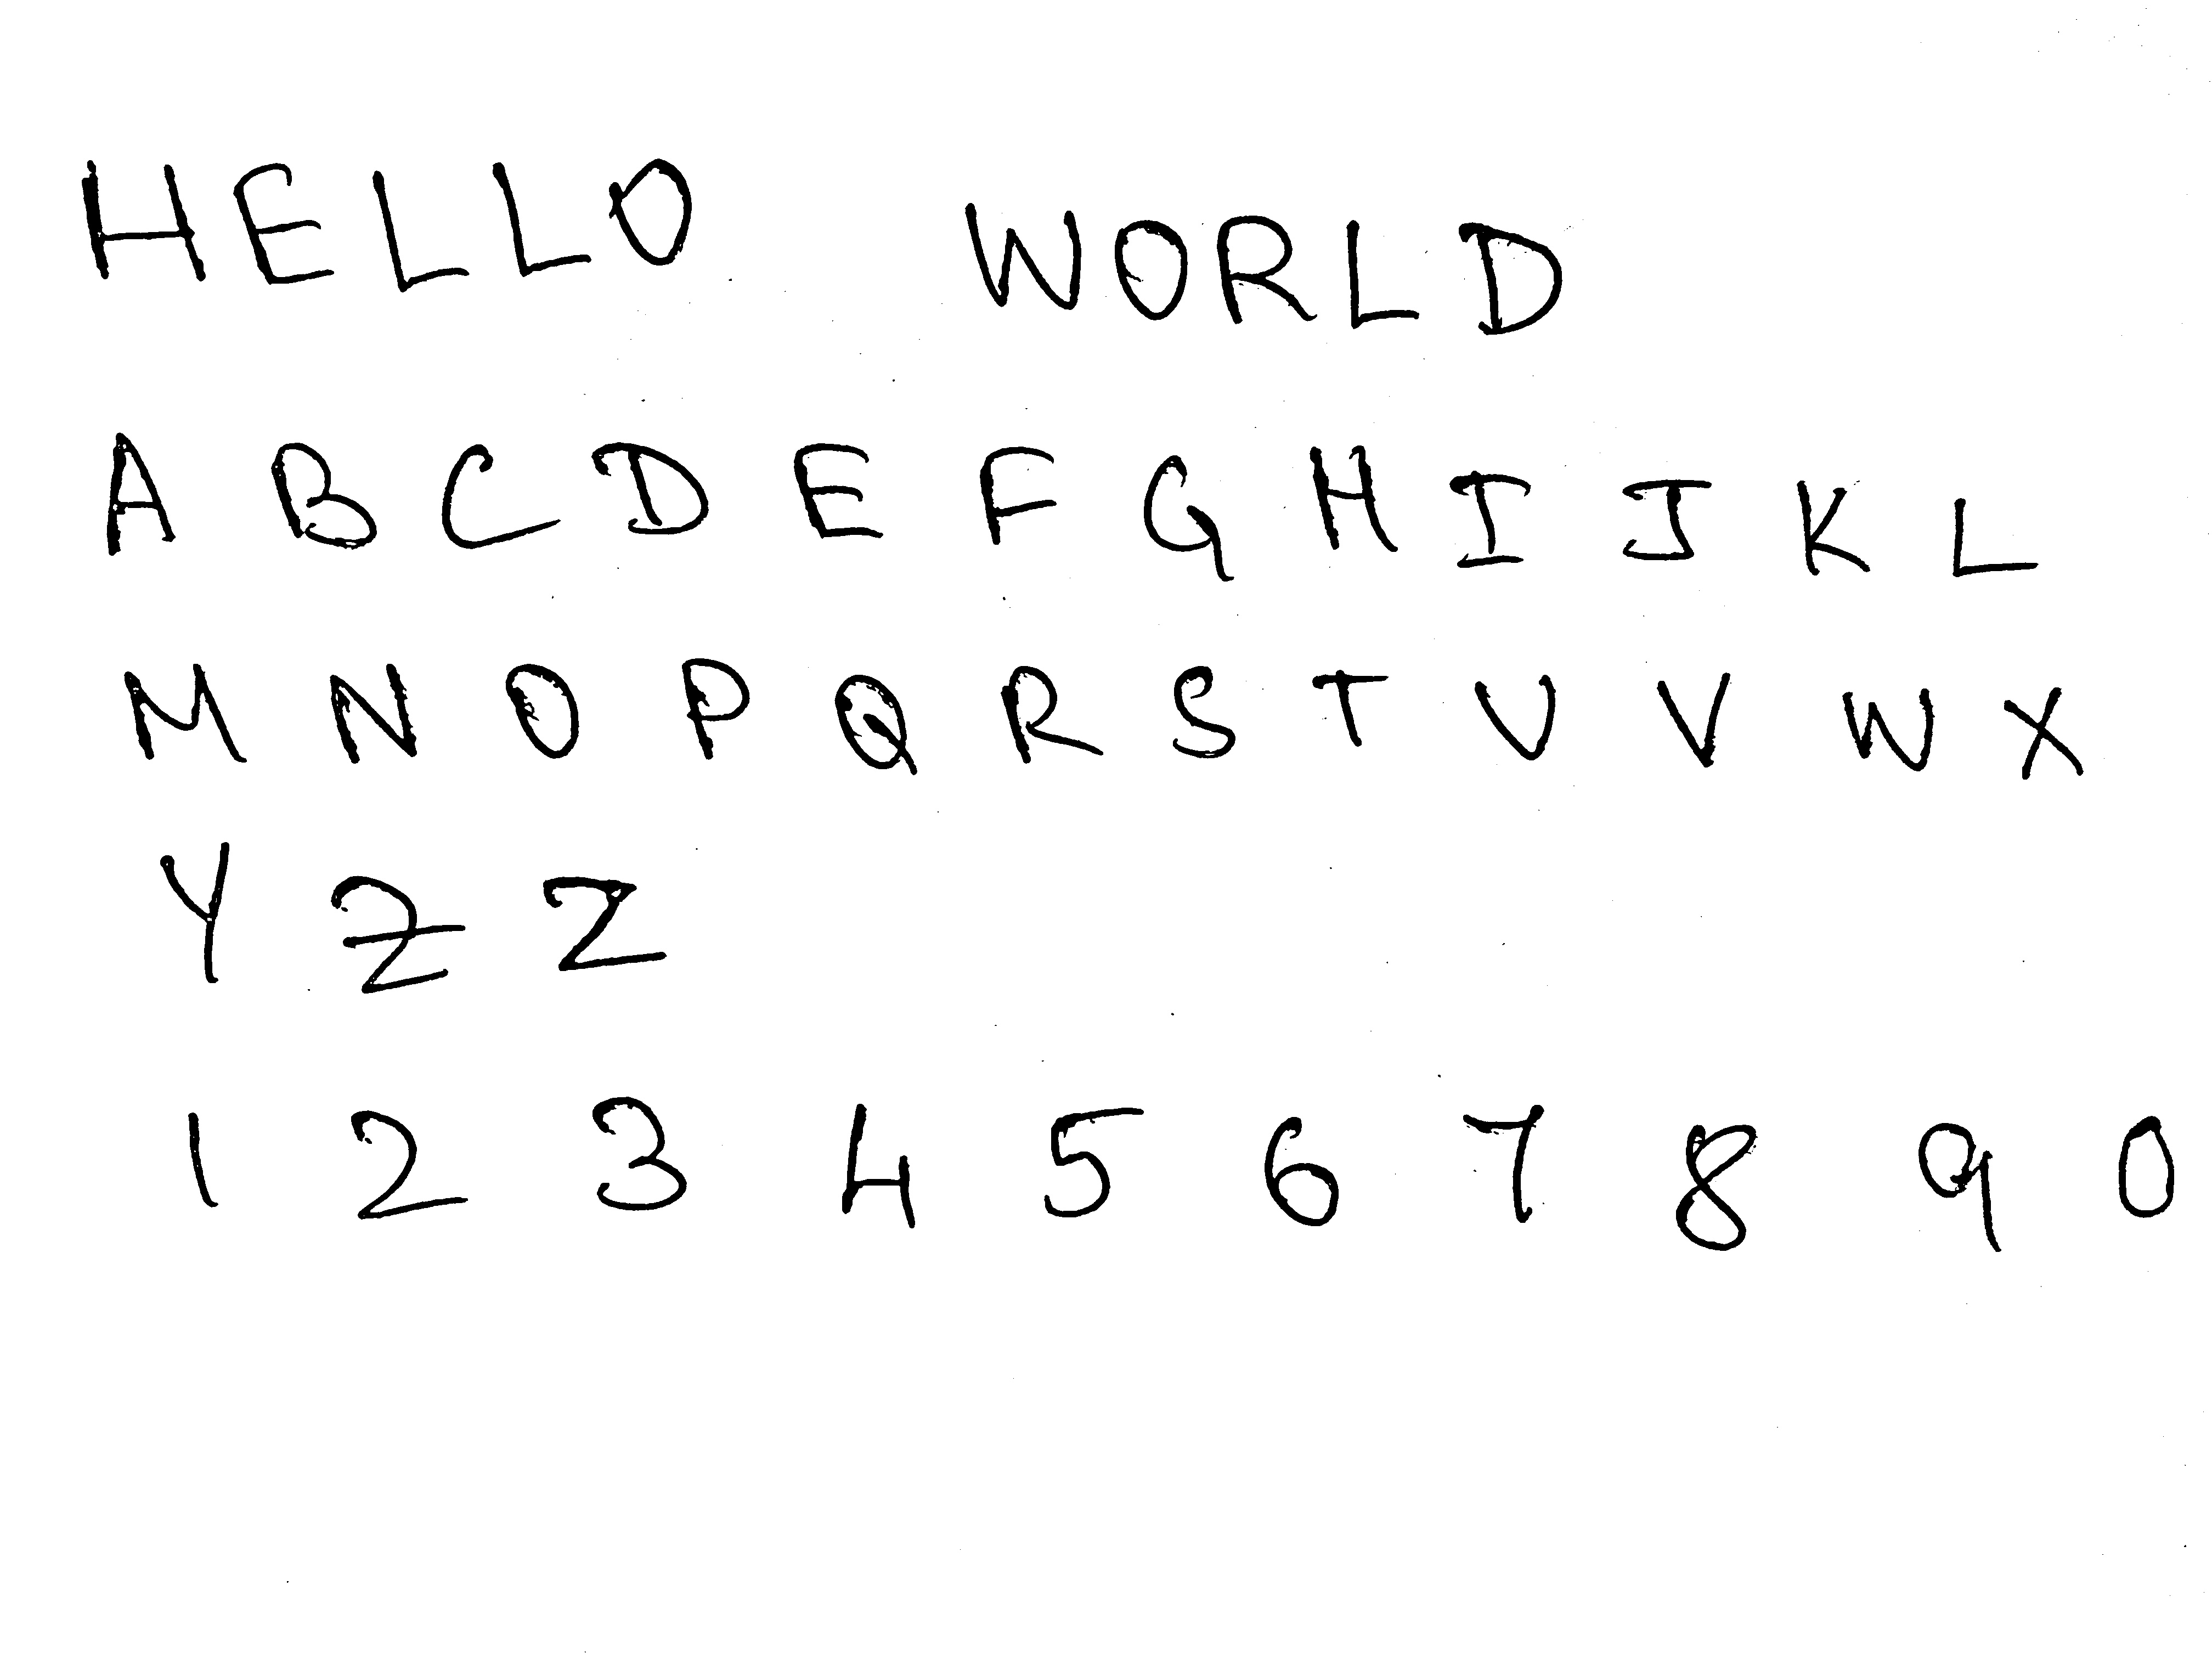 HELLO WORLD
A B C D E F G H I J K L
M N O P Q R S T U V W X
Y Z Z
1 2 3 4 5 6 7 8 9 0